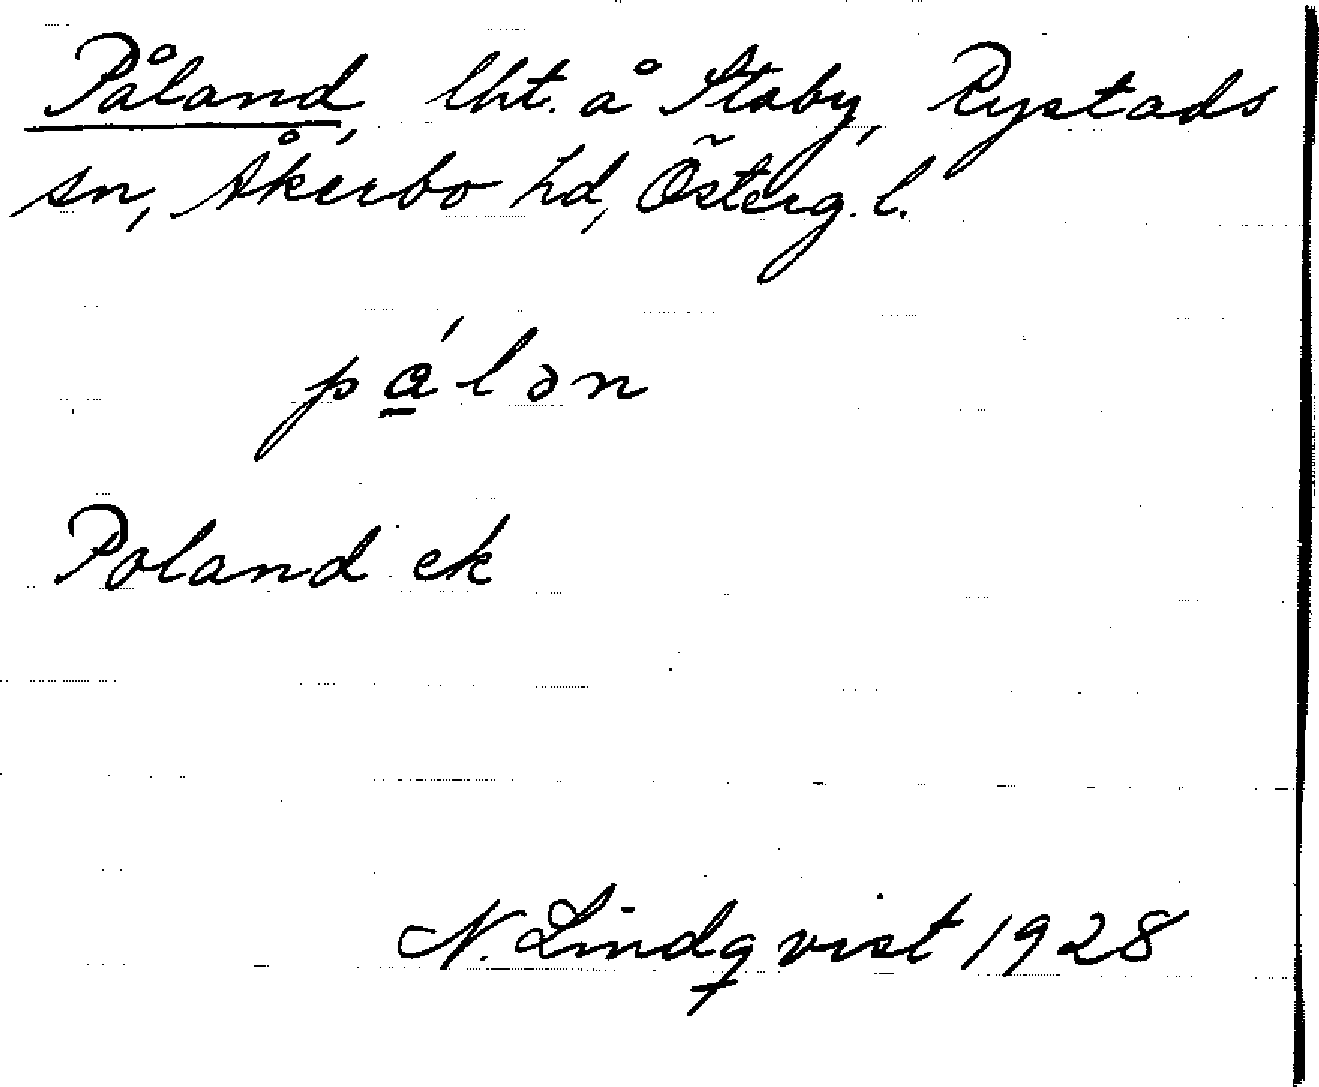 Påland, lht. å Staby, Rystads
sn, Åkerbo hd, Österg. l.
pá̲lən
Poland ek
N. Lindqvist 1928